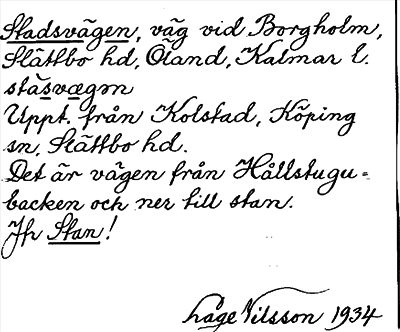 Stadsvägen, väg vid Borgholm,
Slättbo hd, Öland, Kalmar l.
stàsvægən
Uppt. från Kolstad, Köping
sn, Slättbo hd.
Det är vägen från Hållstugu-
backen och ner till stan.
Jfr Stan!
Låge Nilsson 1934